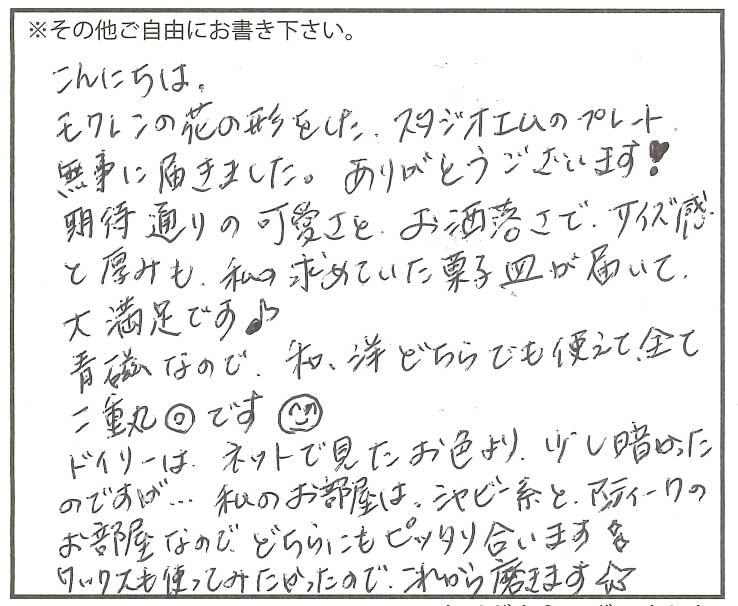 ※その他ご自由にお書き下さい。
こんにちは。
モクレンの花の形をした、スタジオエムのプレート、
無事に届きました。ありがとうございます!
期待通りの可愛さと、お洒落さで、サイズ感
と厚みも、私の求めていた菓子皿が届いて、
大満足です♪
青磁なので、和、洋どちらでも使えて、全て
二重丸◎です
ドイリーは、ネットで見たお色より、少し暗かった
のですが… 私のお部屋は、シャビー系と、アンティークの
お部屋なので、どちらにもピッタリ合います
ワックスも使ってみたかったので、これから磨きます☆